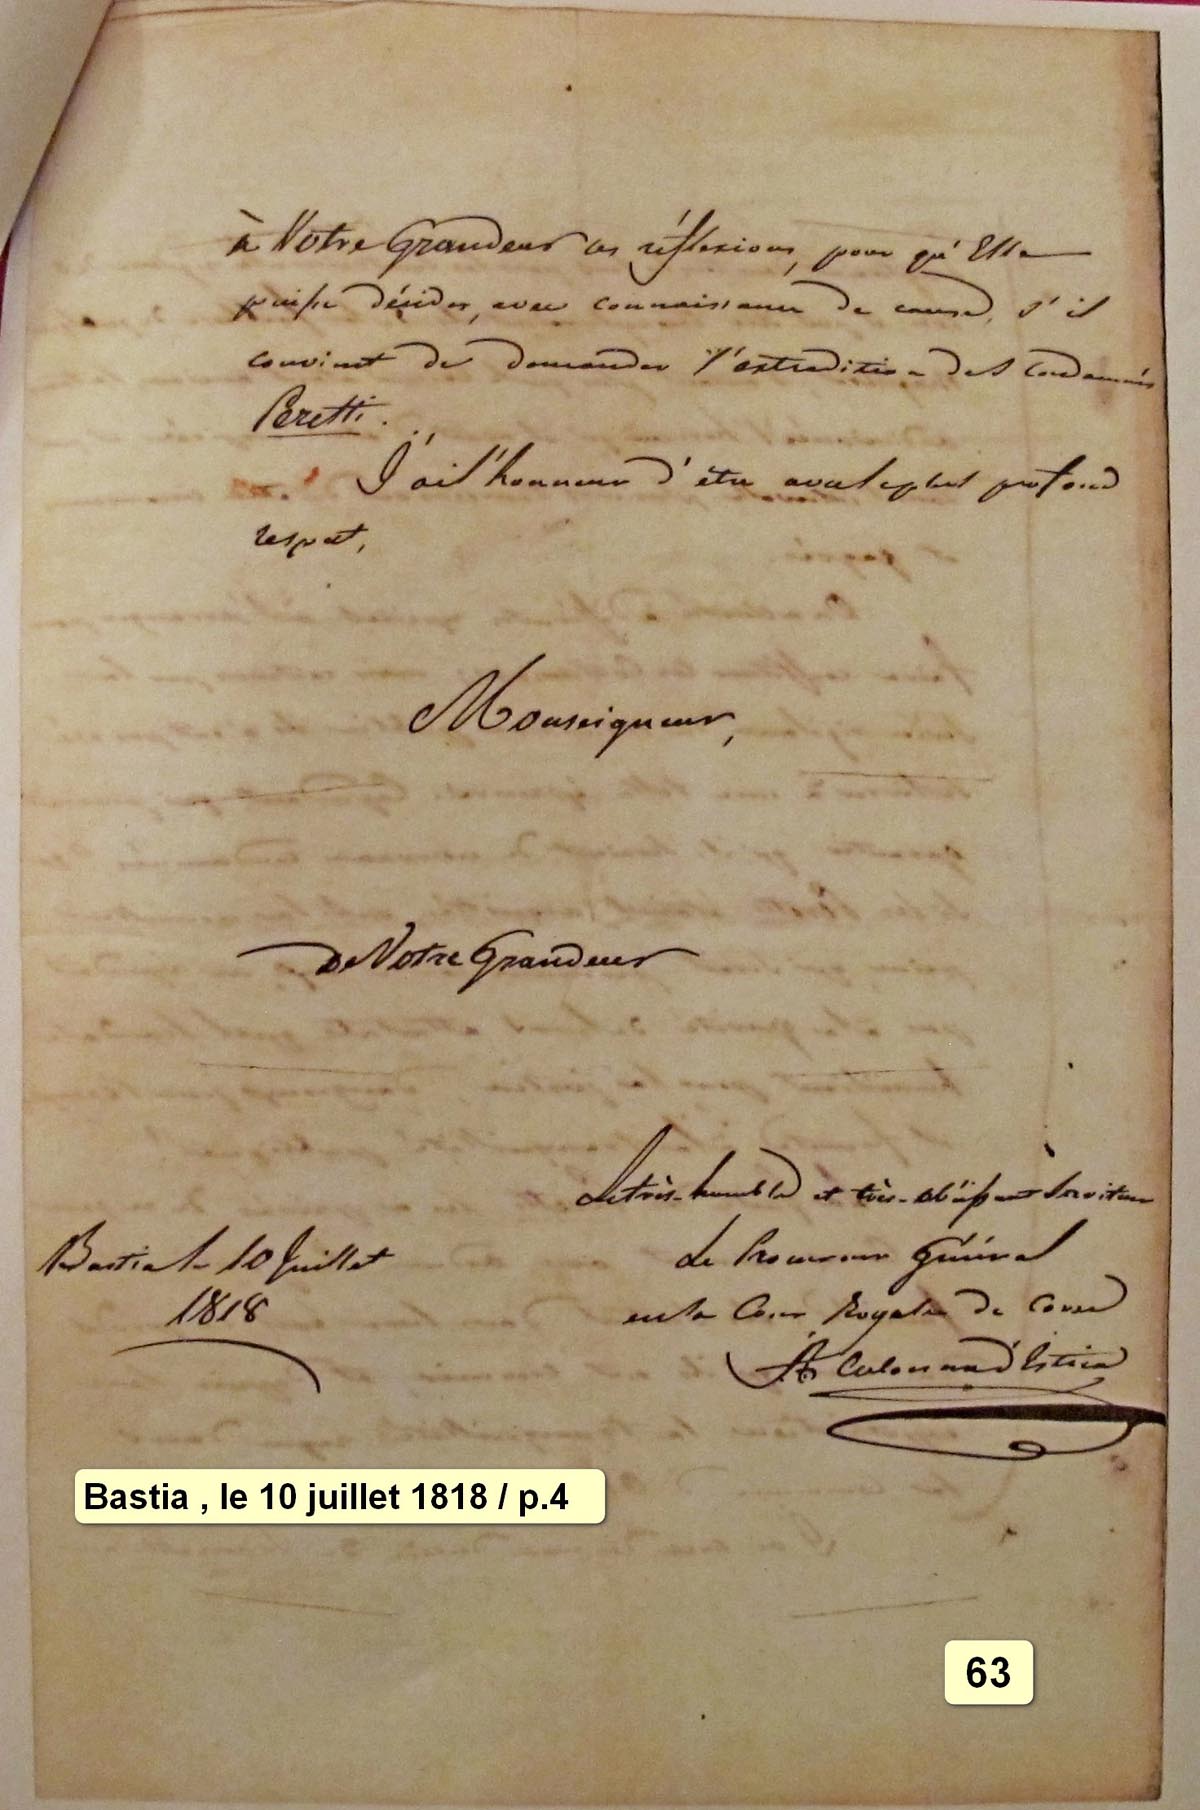 à Votre Grandeur ces réflexions, pour qu'Elle
puisse décider, avec connaissance de cause, s'il
convient de demander l'extradition des Condamnés
Peretti.
J'ai l'honneur d'être avec le plus profond
respect,
Monseigneur,
De Votre Grandeur
Le très-humble et très-obéissant Serviteur
Le Procureur Général
en la Cour Royale de Corse
Colonna d'Istria
Bastia le 10 Juillet
1818
Bastia , le 10 juillet 1818 / p.4
63